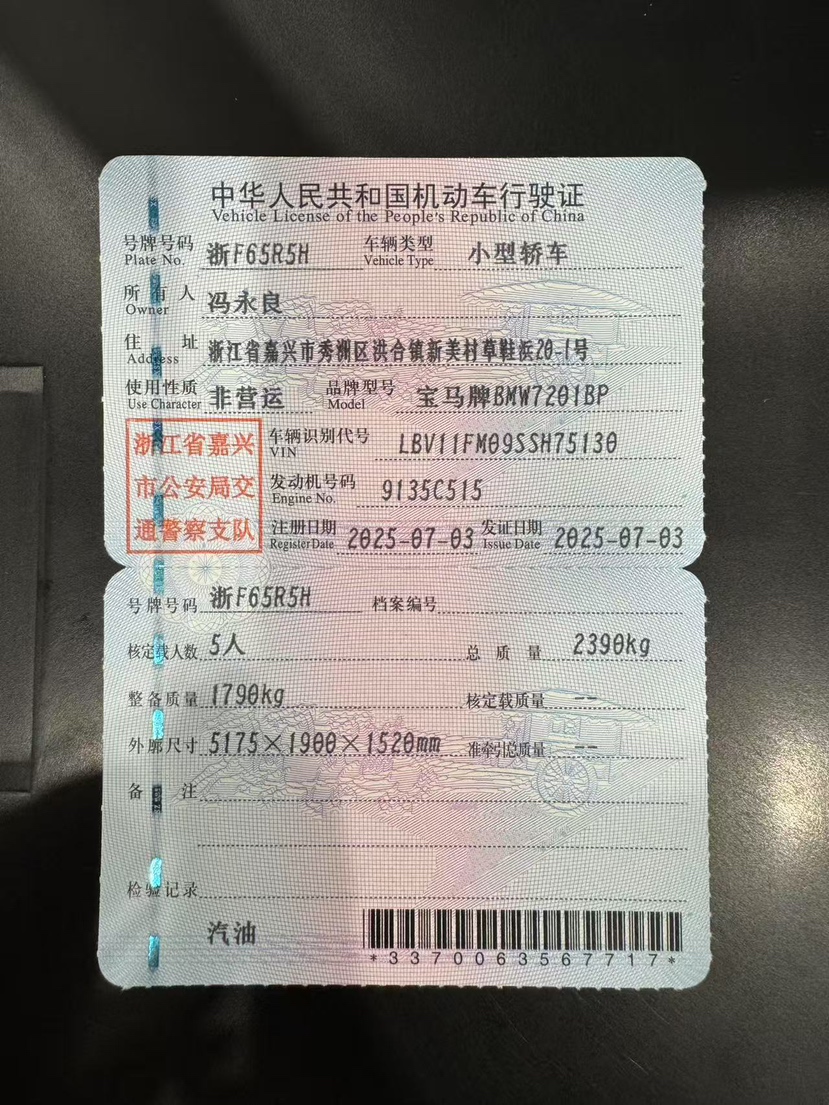 中华人民共和国机动车行驶证
Vehicle License of the People's Republic of China
号牌号码 浙F65R5H 车辆类型 小型轿车
Plate No. Vehicle Type
所有人 冯永良
Owner
住址 浙江省嘉兴市秀洲区洪合镇新美村草鞋浜20-1号
Address
使用性质 非营运 品牌型号 宝马牌BMW7201BP
Use Character Model
浙江省嘉兴
市公安局交
通警察支队
车辆识别代号 LBV11FM09SSH75130
VIN
发动机号码 9135C515
Engine No.
注册日期 2025-07-03 发证日期 2025-07-03
Register Date Issue Date
号牌号码 浙F65R5H 档案编号
核定载人数 5人 总质量 2390kg
整备质量 1790kg 核定载质量 --
外廓尺寸 5175×1900×1520mm 准牵引总质量 --
备注
检验记录
汽油
*3370063567717*